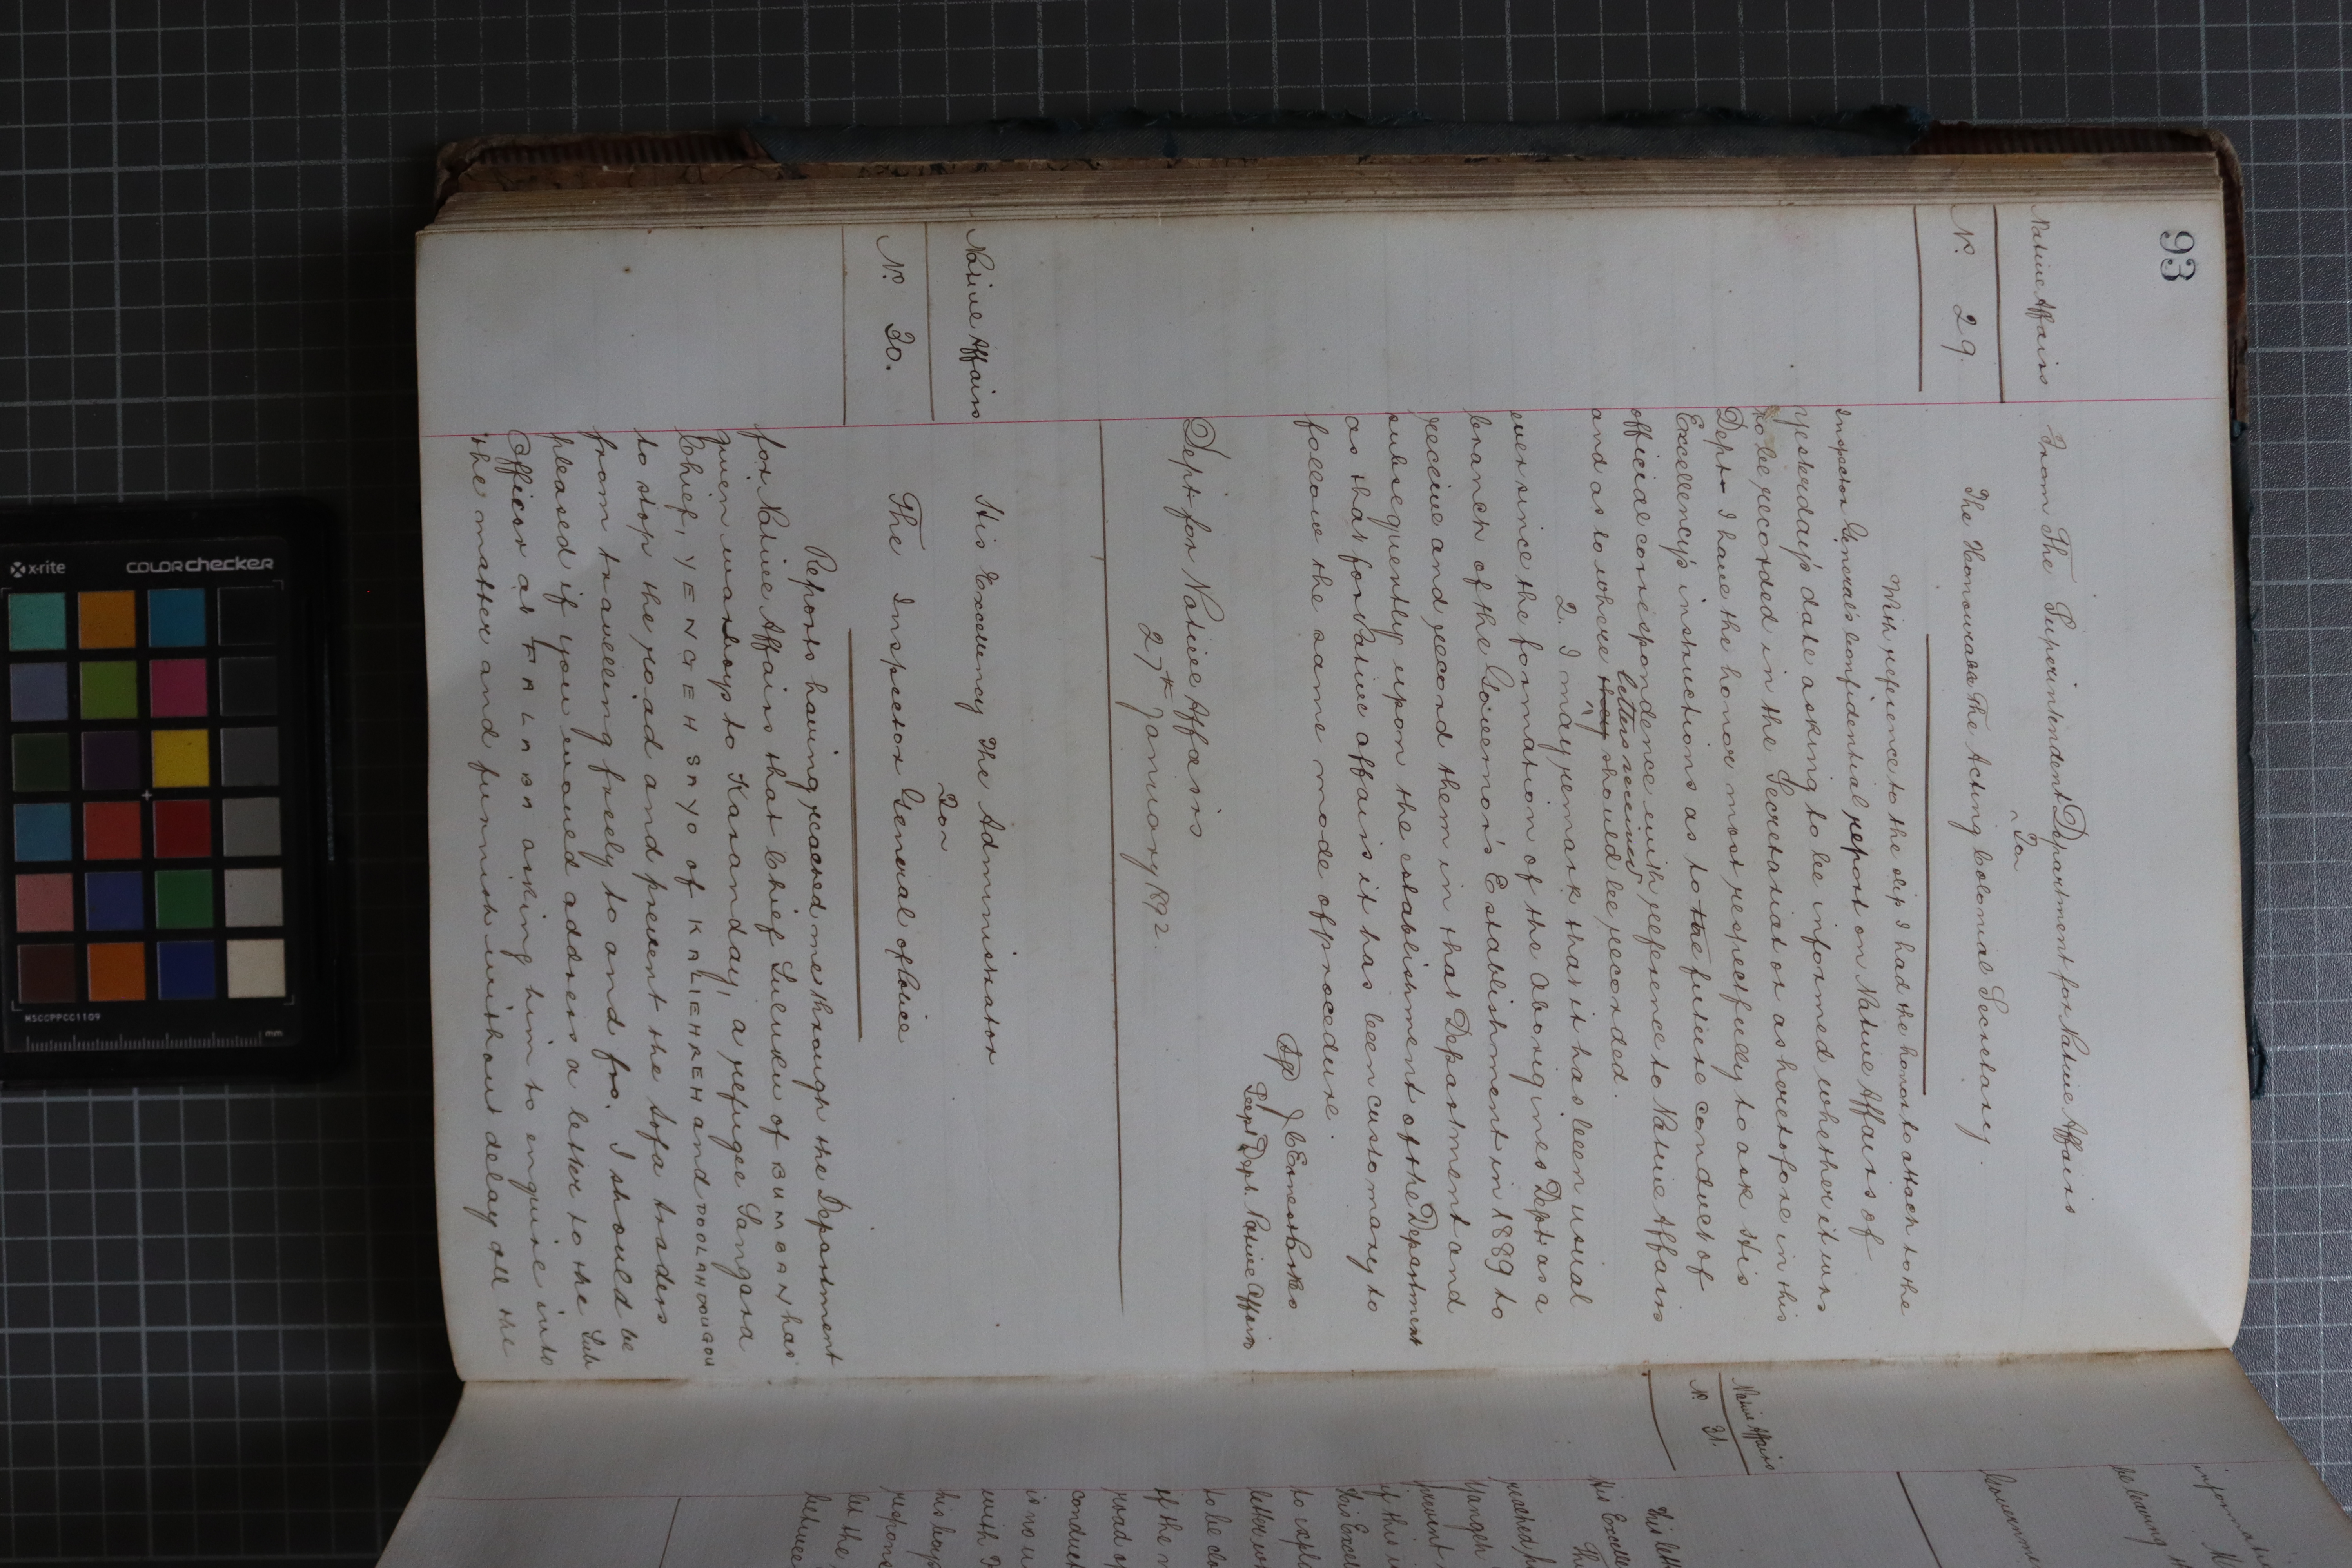 93
Native Affairs
N.º 29.
From The Superintendent Department for Native Affairs
To
The Honourable The Acting Colonial Secretary.
With reference to the slip I had the honor to attach to the
Inspector General's Confidential report on Native Affairs of
yesterday's date asking to be informed whether it was
to be recorded in the Secretariat or as heretofore in this
Dept. I have the honor most respectfully to ask His
Excellency's instructions as to the future conduct of
official correspondence with reference to Native Affairs
letters received
and as to where they should be recorded.
2. I may remark that it has been usual
ever since the formation of the Aborigines Dept. as a
branch of the Governor's Establishment in 1889 to
receive and record them in that Department and
subsequently upon the establishment of the Department
as that for Native affairs it has been customary to
follow the same mode of procedure.
J C Ernest Parkes
Supt Dept. Native Affairs
Dept for Native Affairs
27th January 1892.
Native Affairs
N.º 30.
His Excellency The Administrator
To
The Inspector General of Police
Reports having reached me through the Department
for Native Affairs that Chief Suluku of BUMBAN has
given war boys to Karanday, a refugee Sangara
Chief, YENGEH SAYO of KALIEREH and DOOLANDOUGOU
to stop the road and prevent the Sofa traders
from travelling freely to and fro. I should be
pleased if you would address a letter to the Sub
Officer at FALABA asking him to enquire into
the matter and furnish without delay all the
Native Affairs
N.º 31.